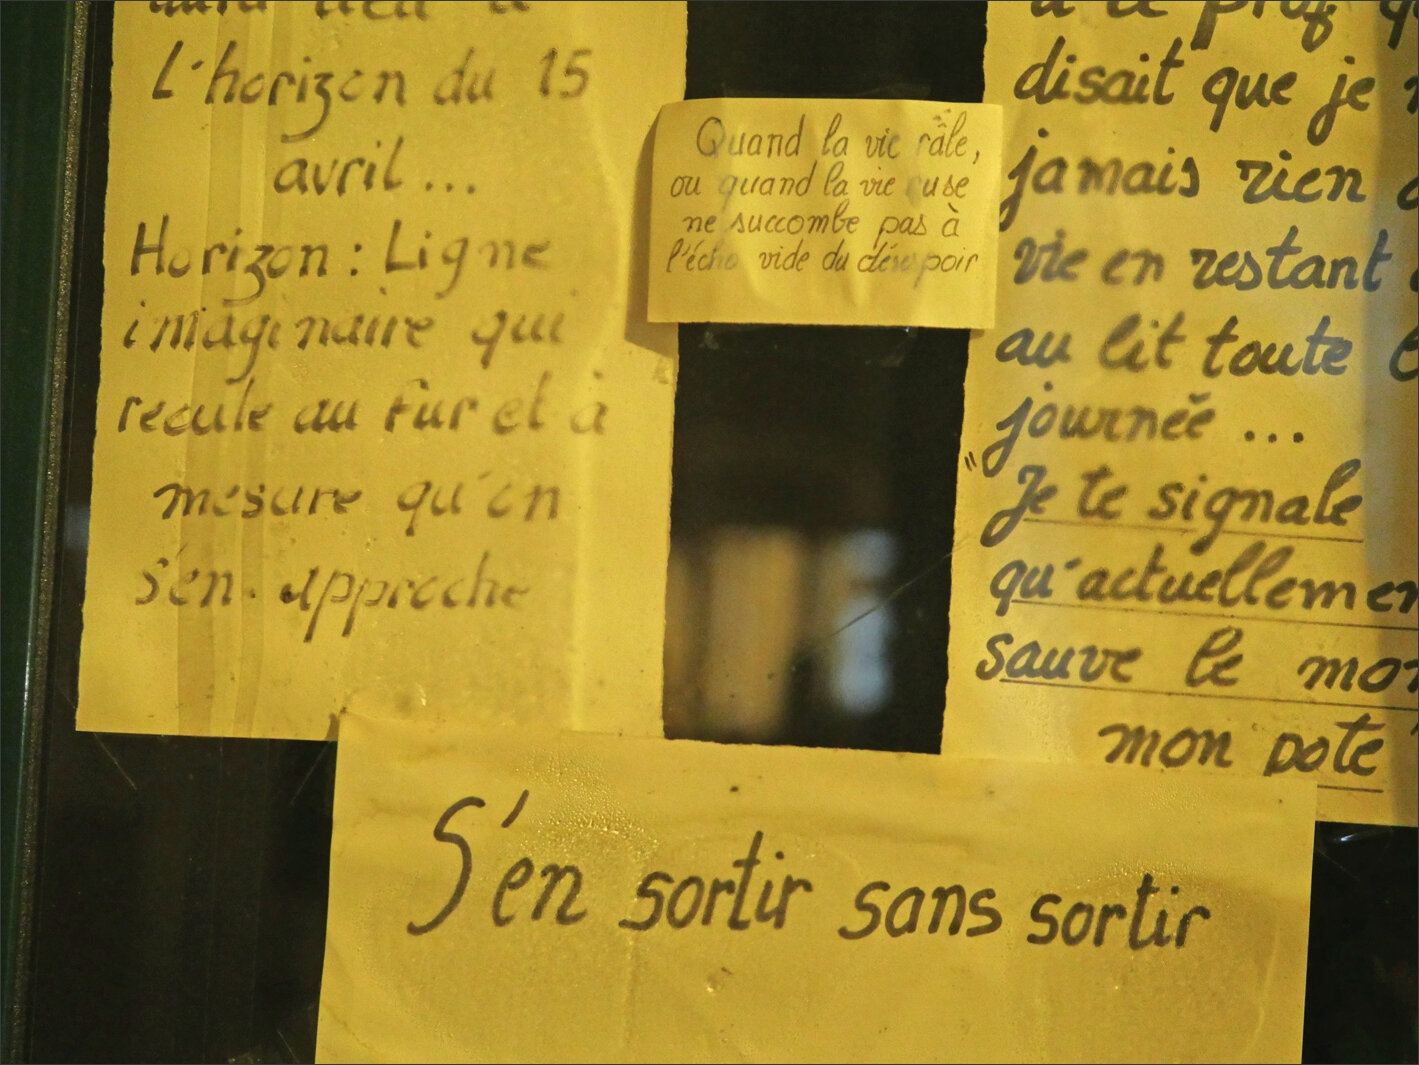 l'horizon du 15
avril...
Horizon : Ligne
imaginaire qui
recule au fur et à
mesure qu'on
s'en approche
Quand la vie râle,
ou quand la vie ruse
ne succombe pas à
l'écho vide du désespoir
à ce prof
disait que je
jamais rien
vie en restant
au lit toute
journée ...
"Je te signale
qu'actuellemen
sauve le mon
mon pote"
S'en sortir sans sortir